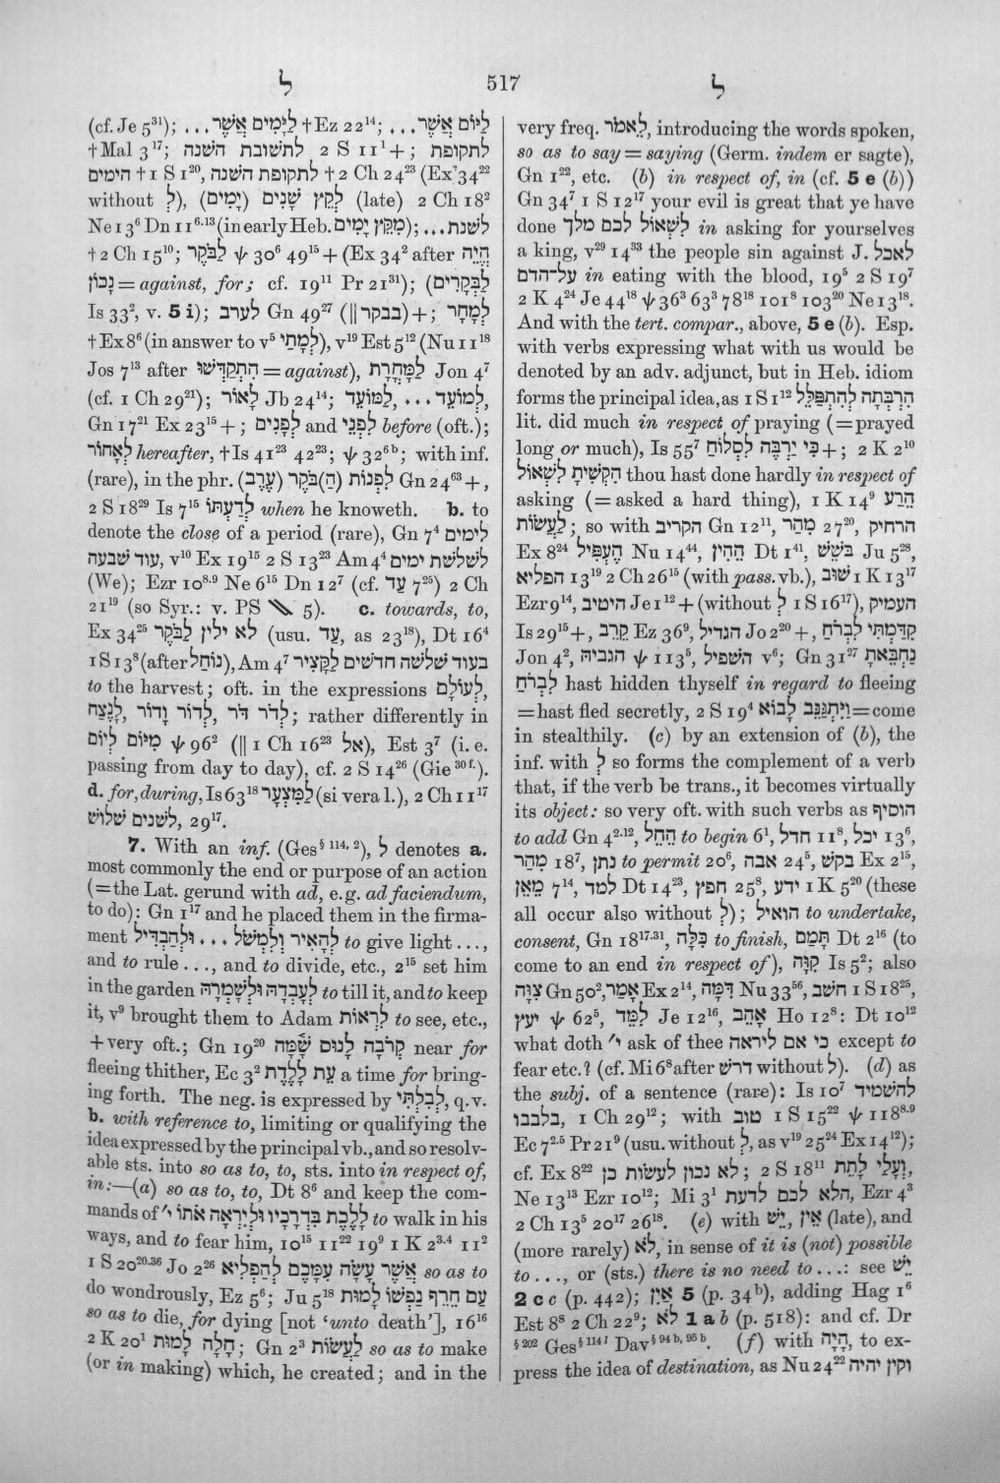 ל 517 ל
(cf. Je 5³¹); לְיוֹם אֲשֶׁר...; †Ez 22¹⁴ לַיָּמִים אֲשֶׁר...
†Mal 3¹⁷; לתשובת השנה 2 S 11¹+; לתקופת
הימים †1 S 1²⁰, לתקופת השנה †2 Ch 24²³ (Ex 34²²
without לְ), לְקֵץ שָׁנִים (יָמִים) (late) 2 Ch 18²
Ne 13⁶ Dn 11⁶·¹³ (in early Heb. מִקֵּץ יָמִים); לשנת...
†2 Ch 15¹⁰; לַבֹּקֶר ψ 30⁶ 49¹⁵+ (Ex 34² after הֱיֵה
נָכוֹן = against, for; cf. 19¹¹ Pr 21³¹); (לַבְּקָרִים
Is 33², v. 5 i); לערב Gn 49²⁷ (‖בבקר)+; לְמָחָר
†Ex 8⁶ (in answer to v⁵ לְמָתַי), v¹⁹ Est 5¹² (Nu 11¹⁸
Jos 7¹³ after הִתְקַדְּשׁוּ = against), לַמָּחֳרָת Jon 4⁷
(cf. 1 Ch 29²¹); לָאוֹר Jb 24¹⁴; לַמּוֹעֵד, לְמוֹעֵד...,
Gn 17²¹ Ex 23¹⁵+; לְפָנִים and לִפְנֵי before (oft.);
לְאָחוֹר hereafter, †Is 41²³ 42²³; ψ 32⁶ᵇ; with inf.
(rare), in the phr. לִפְנוֹת (הַ)בֹּקֶר (עֶרֶב) Gn 24⁶³+,
2 S 18²⁹ Is 7¹⁵ לְדַעְתּוֹ when he knoweth. b. to
denote the close of a period (rare), Gn 7⁴ לימים
עוד שבעה, v¹⁰ Ex 19¹⁵ 2 S 13²³ Am 4⁴ לשלשת ימים
(We); Ezr 10⁸·⁹ Ne 6¹⁵ Dn 12⁷ (cf. עַד 7²⁵) 2 Ch
21¹⁹ (so Syr.: v. PS 5). c. towards, to,
Ex 34²⁵ לא ילין לַבֹּקֶר (usu. עַד, as 23¹⁸), Dt 16⁴
1 S 13⁸ (after נוֹחַל), Am 4⁷ בעוד שלשה חדשים לַקָּצִיר
to the harvest; oft. in the expressions לְעוֹלָם,
לְדֹר דֹּר, לְדוֹר וָדוֹר, לָנֶצַח; rather differently in
מִיּוֹם לְיוֹם ψ 96² (‖ 1 Ch 16²³ אל), Est 3⁷ (i. e.
passing from day to day), cf. 2 S 14²⁶ (Gie ³⁰ ᶠ·).
d. for, during, Is 63¹⁸ לַמִּצְעָר (si vera l.), 2 Ch 11¹⁷
לשנים שלוש, 29¹⁷.
7. With an inf. (Ges § 114, 2), לְ denotes a.
most commonly the end or purpose of an action
(= the Lat. gerund with ad, e. g. ad faciendum,
to do): Gn 1¹⁷ and he placed them in the firma-
ment לְהָאִיר וְלִמְשֹׁל ... וּלְהַבְדִּיל to give light ...,
and to rule ..., and to divide, etc., 2¹⁵ set him
in the garden לְעָבְדָהּ וּלְשָׁמְרָהּ to till it, and to keep
it, v⁹ brought them to Adam לִרְאוֹת to see, etc.,
+ very oft.; Gn 19²⁰ קְרֹבָה לָנוּס שָׁמָּה near for
fleeing thither, Ec 3² עֵת לָלֶדֶת a time for bring-
ing forth. The neg. is expressed by לְבִלְתִּי, q.v.
b. with reference to, limiting or qualifying the
idea expressed by the principal vb., and so resolv-
able sts. into so as to, to, sts. into in respect of,
in:—(a) so as to, to, Dt 8⁶ and keep the com-
mands of י׳ לָלֶכֶת בִּדְרָכָיו וּלְיִרְאָה אֹתוֹ to walk in his
ways, and to fear him, 10¹⁵ 11²² 19⁹ 1 K 2³·⁴ 11²
1 S 20²⁰·³⁶ Jo 2²⁶ אֲשֶׁר עָשָׂה עִמָּכֶם לְהַפְלִיא so as to
do wondrously, Ez 5⁶; Ju 5¹⁸ עַם חֵרֵף נַפְשׁוֹ לָמוּת
so as to die, for dying [not ‘unto death’], 16¹⁶
2 K 20¹ חָלָה לָמוּת; Gn 2³ לַעֲשׂוֹת so as to make
(or in making) which, he created; and in the
very freq. לֵאמֹר, introducing the words spoken,
so as to say = saying (Germ. indem er sagte),
Gn 1²², etc. (b) in respect of, in (cf. 5 e (b))
Gn 34⁷ 1 S 12¹⁷ your evil is great that ye have
done לִשְׁאוֹל לכם מלך in asking for yourselves
a king, v²⁹ 14³³ the people sin against J. לאכל
על־הדם in eating with the blood, 19⁵ 2 S 19⁷
2 K 4²⁴ Je 44¹⁸ ψ 36³ 63³ 78¹⁸ 101⁸ 103²⁰ Ne 13¹⁸.
And with the tert. compar., above, 5 e (b). Esp.
with verbs expressing what with us would be
denoted by an adv. adjunct, but in Heb. idiom
forms the principal idea, as 1 S 1¹² הִרְבְּתָה לְהִתְפַּלֵּל
lit. did much in respect of praying (= prayed
long or much), Is 55⁷ כִּי יַרְבֶּה לִסְלוֹחַ+; 2 K 2¹⁰
הִקְשִׁיתָ לִשְׁאוֹל thou hast done hardly in respect of
asking (= asked a hard thing), 1 K 14⁹ הֵרַע
לַעֲשׂוֹת; so with הקריב Gn 12¹¹, מִהַר 27²⁰, הרחיק
Ex 8²⁴ הֶעְפִּיל Nu 14⁴⁴, הֵהִין Dt 1⁴¹, בּשֵׁשׁ Ju 5²⁸,
הפליא 13¹⁹ 2 Ch 26¹⁵ (with pass. vb.), שׁוּב 1 K 13¹⁷
Ezr 9¹⁴, היטיב Je 1¹²+ (without לְ 1 S 16¹⁷), העמיק
Is 29¹⁵+, קֵרֵב Ez 36⁹, הגדיל Jo 2²⁰+, קִדַּמְתִּי לִבְרֹחַ
Jon 4², הגביה ψ 113⁵, השפיל v⁶; Gn 31²⁷ נַחְבֵּאתָ
לִבְרֹחַ hast hidden thyself in regard to fleeing
= hast fled secretly, 2 S 19⁴ וַיִּתְגַּנֵּב לָבוֹא = come
in stealthily. (c) by an extension of (b), the
inf. with לְ so forms the complement of a verb
that, if the verb be trans., it becomes virtually
its object: so very oft. with such verbs as הוסיף
to add Gn 4²·¹², הֵחֵל to begin 6¹, חדל 11⁸, יכל 13⁶,
מִהַר 18⁷, נתן to permit 20⁶, אבה 24⁵, בקש Ex 2¹⁵,
מֵאֵן 7¹⁴, למד Dt 14²³, חפץ 25⁸, ידע 1 K 5²⁰ (these
all occur also without לְ); הואיל to undertake,
consent, Gn 18¹⁷·³¹, כִּלָּה to finish, תָּמַם Dt 2¹⁶ (to
come to an end in respect of), קִוָּה Is 5²; also
צִוָּה Gn 50², אָמַר Ex 2¹⁴, דִּמָּה Nu 33⁵⁶, חשב 1 S 18²⁵,
יעץ ψ 62⁵, לִמֵּד Je 12¹⁶, אָהֵב Ho 12⁸: Dt 10¹²
what doth י׳ ask of thee כי אם ליראה except to
fear etc.? (cf. Mi 6⁸ after דרש without לְ). (d) as
the subj. of a sentence (rare): Is 10⁷ להשמיד
בלבבו, 1 Ch 29¹²; with טוב 1 S 15²² ψ 118⁸·⁹
Ec 7²·⁵ Pr 21⁹ (usu. without לְ, as v¹⁹ 25²⁴ Ex 14¹²);
cf. Ex 8²² לא נכון לעשות כן; 2 S 18¹¹ וְעָלַי לָתֵת,
Ne 13¹³ Ezr 10¹²; Mi 3¹ הלא לכם לדעת, Ezr 4³
2 Ch 13⁵ 20¹⁷ 26¹⁸. (e) with יֵשׁ, אֵין (late), and
(more rarely) לֹא, in sense of it is (not) possible
to ..., or (sts.) there is no need to ...: see יֵשׁ
2 c c (p. 442); אַיִן 5 (p. 34ᵇ), adding Hag 1⁶
Est 8⁸ 2 Ch 22⁹; לֹא 1 a b (p. 518): and cf. Dr
§ 202 Ges § 114 l Dav § 94 b, 95 b. (f) with הָיָה, to ex-
press the idea of destination, as Nu 24²² וקין יהיה